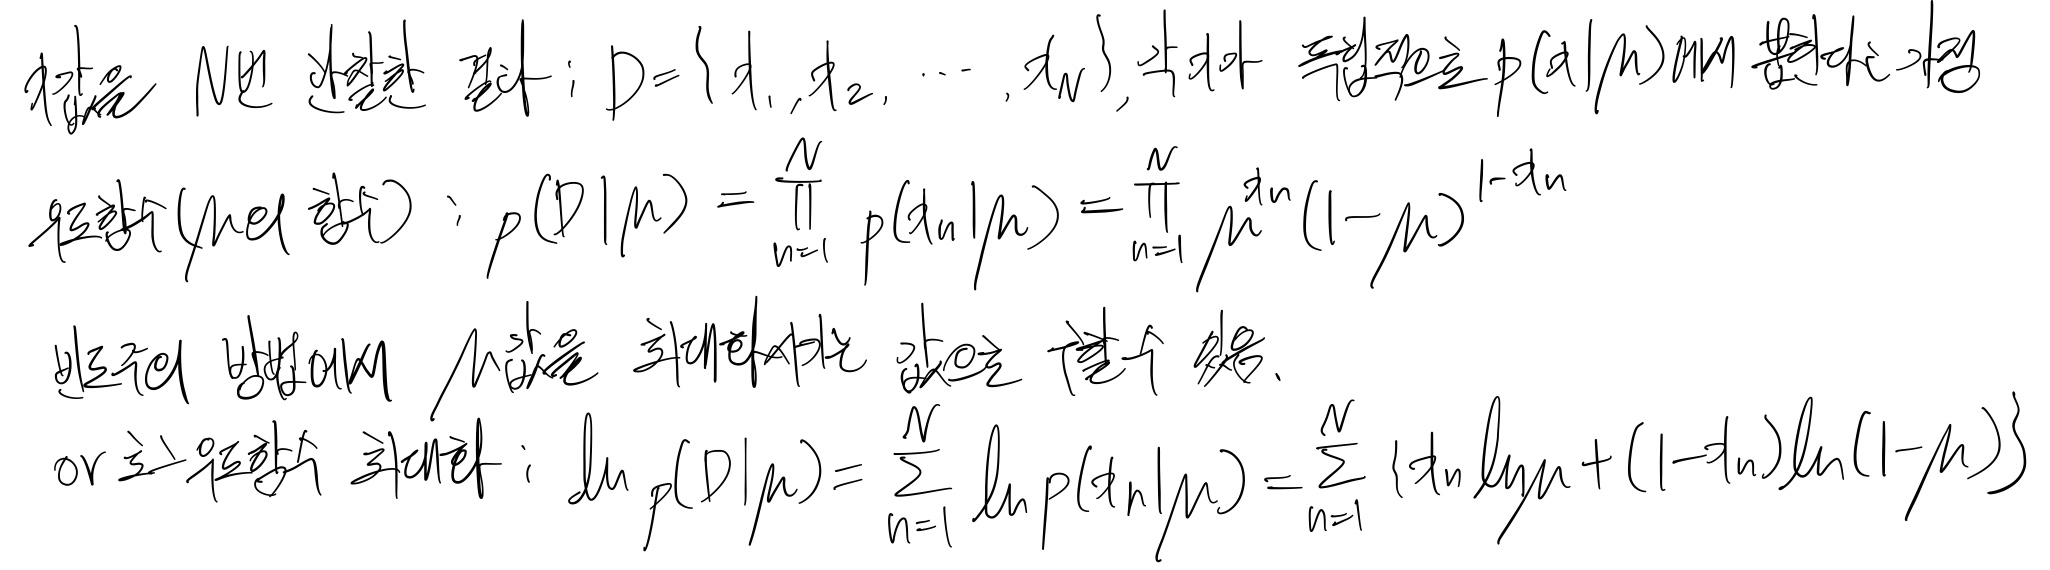 x값을 N번 관찰한 결과 : D = {x₁, x₂, ⋯, x_N}, 각 x가 독립적으로 p(x|μ)에서 뽑힌다는 가정
우도함수(μ의 함수) : p(D|μ) = ∏_{n=1}^{N} p(x_n|μ) = ∏_{n=1}^{N} μ^{x_n}(1-μ)^{1-x_n}
빈도주의 방법에서 μ값을 최대화시키는 값으로 구할 수 있음.
or 로그 우도함수 최대화 : ln p(D|μ) = ∑_{n=1}^{N} ln p(x_n|μ) = ∑_{n=1}^{N} {x_n ln μ + (1-x_n) ln(1-μ)}